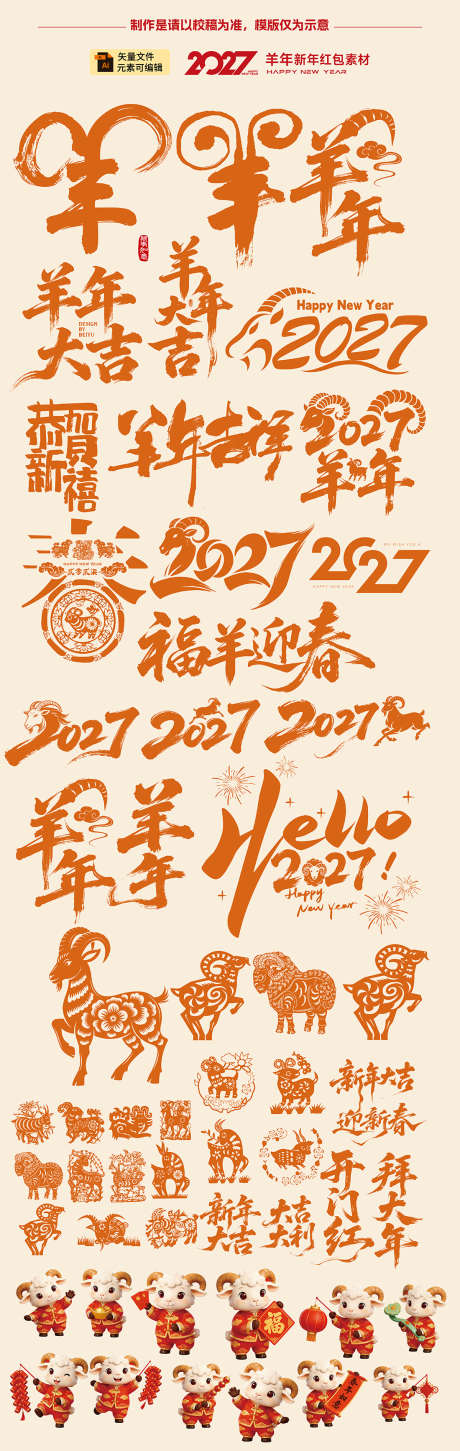 制作是请以校稿为准，模版仅为示意
Ai
矢量文件
元素可编辑
2027 HAPPY NEW YEAR
羊年新年红包素材
HAPPY NEW YEAR
羊
羊
羊年
羊年大吉
DESIGN
BY
BEIYU
羊年大吉
Happy New Year
2027
恭贺新禧
羊年吉祥
2027
羊年
春
HAPPY NEW YEAR
贰零贰柒
2027
2027
HAPPY NEW YEAR
福羊迎春
2027
2027
2027
羊年
羊年
Hello
2027!
Happy
New Year
新年大吉
迎新春
新年大吉
大吉大利
开门红
拜大年
福